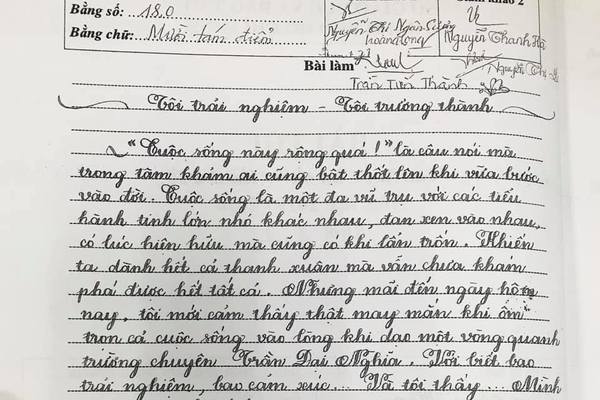 Bằng số: 18.0
Bằng chữ: Mười tám điểm
Nguyễn Thị Ngân
Nguyễn Thanh Hà
Nguyễn Thị
Bài làm
Trần Tiến Thành
Tôi trải nghiệm - Tôi trưởng thành
"Cuộc sống này rộng quá!" là câu nói mà
trong tâm khảm ai cũng bật thốt lên khi vừa bước
vào đời. Cuộc sống là một đa vũ trụ với các tiểu
hành tinh lớn nhỏ khác nhau, đan xen vào nhau,
có lúc hiện hữu mà cũng có khi lẩn trốn. Khiến
ta dành hết cả thanh xuân mà vẫn chưa khám
phá được hết tất cả. Nhưng mãi đến ngày hôm
nay, tôi mới cảm thấy thật may mắn khi ôm
trọn cả cuộc sống vào lòng khi dạo một vòng quanh
trường chuyên Trần Đại Nghĩa. Với biết bao
trải nghiệm, bao cảm xúc... Và tôi thấy... Mình